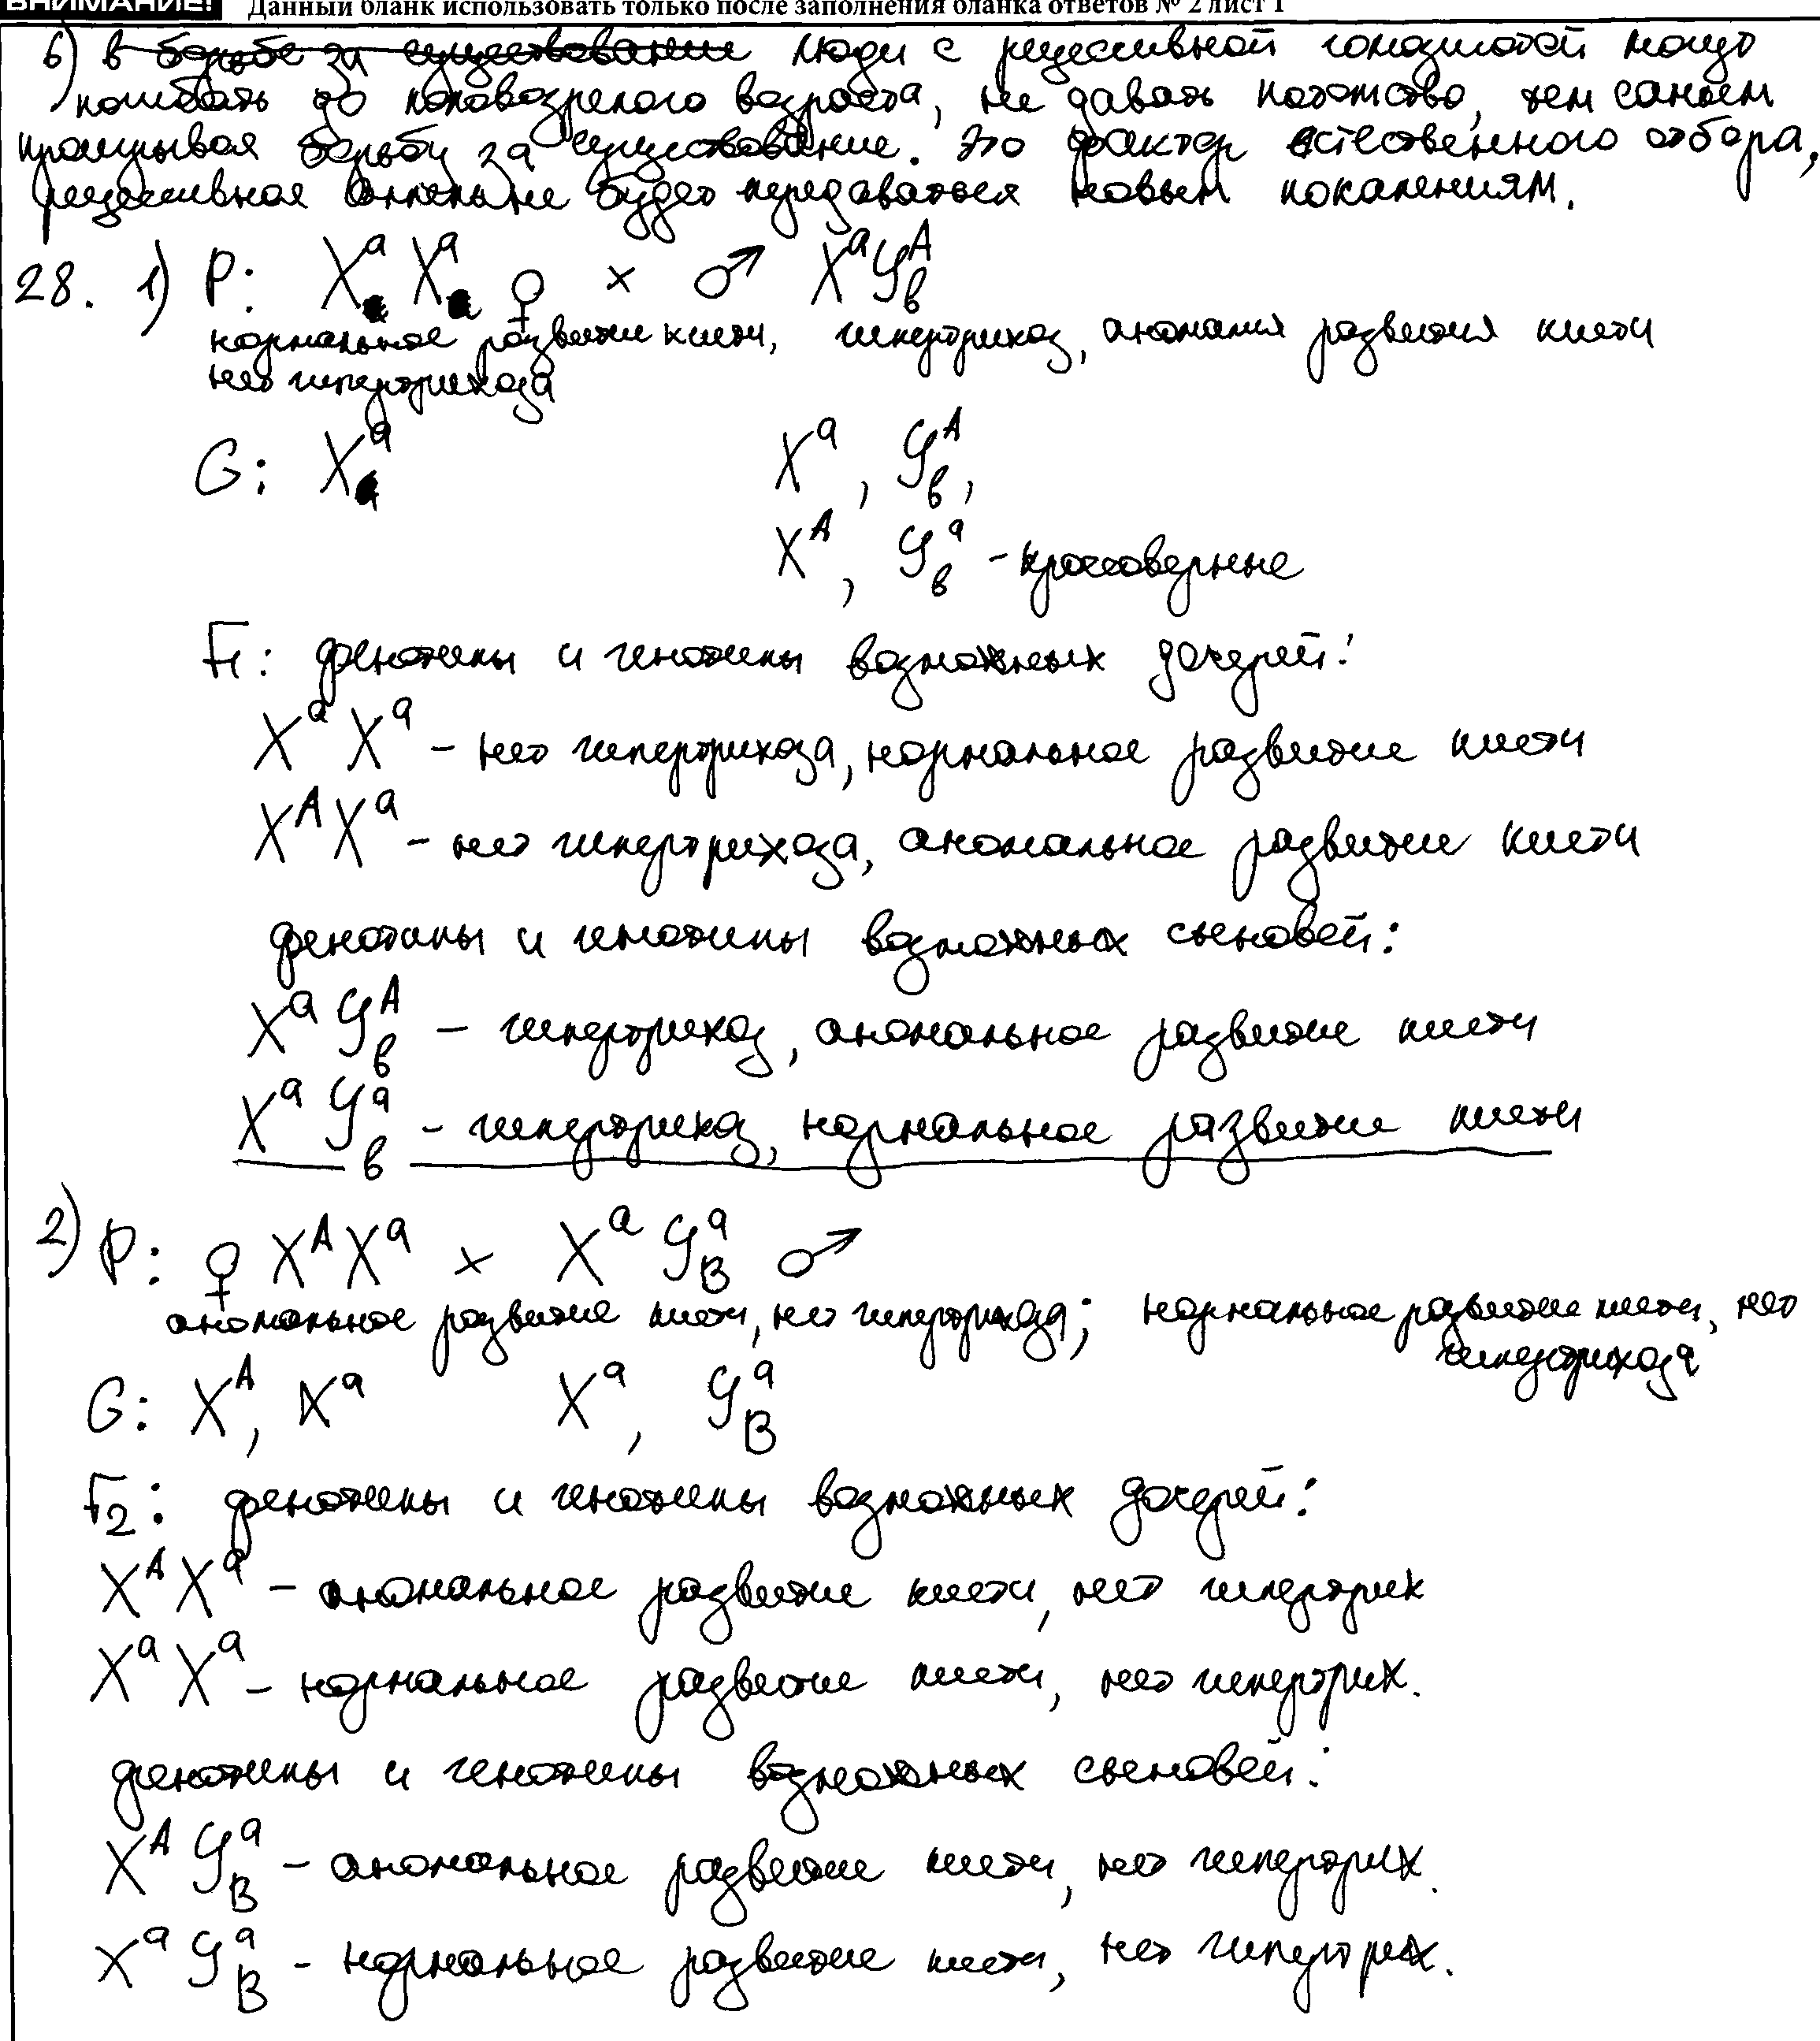 ВНИМАНИЕ! Данный бланк использовать только после заполнения бланка ответов № 2 лист 1
6) в борьбе за существование люди с рецессивной гомозиготой могут
погибать до половозрелого возраста, не давать потомство, тем самым
проигрывая борьбу за существование. Это фактор естественного отбора,
рецессивная аллель не будет передаваться новым поколениям.
28. 1) P: Xᵃ Xᵃ ♀ × ♂ XᵃYᴬв
нормальное развитие кисти, гипертрихоз, аномалия развития кисти
нет гипертрихоза
G: Xᵃ Xᵃ, Yᴬв,
Xᴬ, Yᵃв - кроссоверные
F1: фенотипы и генотипы возможных дочерей:
Xᵃ Xᵃ - нет гипертрихоза, нормальное развитие кисти
Xᴬ Xᵃ - нет гипертрихоза, аномальное развитие кисти
фенотипы и генотипы возможных сыновей:
Xᵃ Yᴬв - гипертрихоз, аномальное развитие кисти
Xᵃ Yᵃв - гипертрихоз, нормальное развитие кисти
2) P: ♀ Xᴬ Xᵃ × Xᵃ YᵃB ♂
аномальное развитие кисти, нет гипертрихоза; нормальное развитие кисти, нет
гипертрихоза
G: Xᴬ, Xᵃ Xᵃ, YᵃB
F2: фенотипы и генотипы возможных дочерей:
Xᴬ Xᵃ - аномальное развитие кисти, нет гипертрих
Xᵃ Xᵃ - нормальное развитие кисти, нет гипертрих.
фенотипы и генотипы возможных сыновей:
Xᴬ YᵃB - аномальное развитие кисти, нет гипертрих.
Xᵃ YᵃB - нормальное развитие кисти, нет гипертрих.